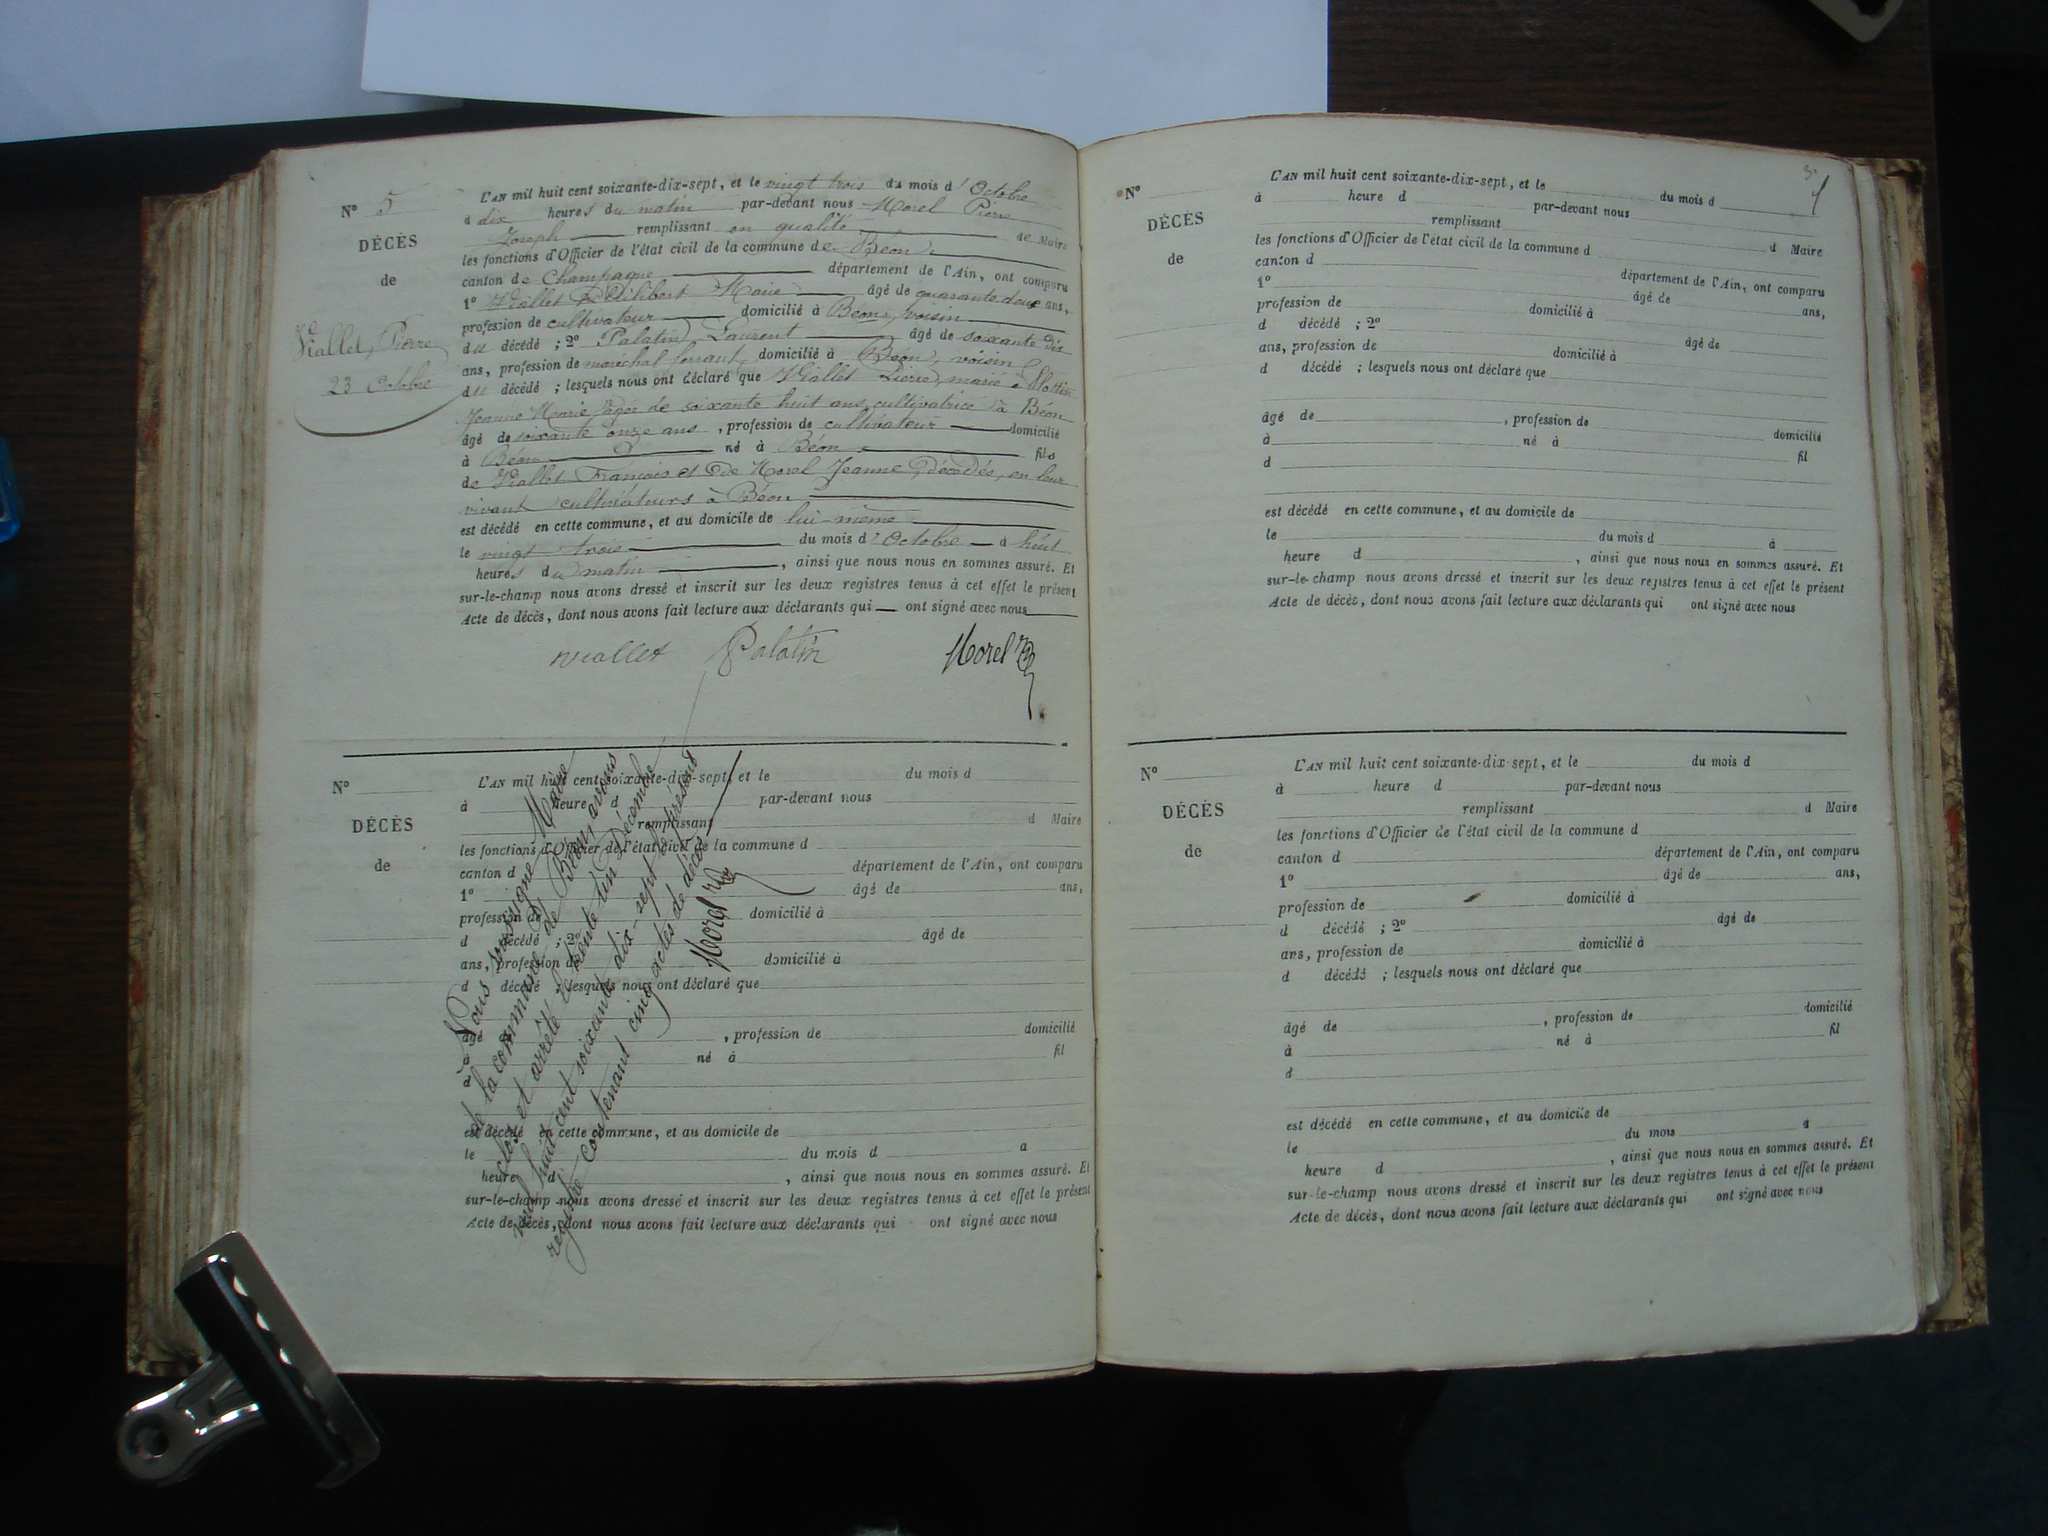 N° 5
DÉCÈS
de
Viallet Pierre
23 Octobre
L'AN mil huit cent soixante-dix-sept, et le vingt trois du mois d'Octobre
à dix heures du matin par-devant nous Morel Pierre
Joseph remplissant en qualité de Maire
les fonctions d'Officier de l'état civil de la commune de Béon
canton de Champagne département de l'Ain, ont comparu
1° Viallet Philibert Marie âgé de quarante deux ans,
profession de cultivateur domicilié à Béon, voisin
du décédé ; 2° Palatin Laurent âgé de soixante dix
ans, profession de maréchal ferrant, domicilié à Béon, voisin
du décédé ; lesquels nous ont déclaré que Viallet Pierre, marié à
Jeanne Marie âgée de soixante huit ans cultivatrice à Béon
âgé de soixante onze ans , profession de cultivateur domicilié
à Béon né à Béon fils
de Viallet François et de Morel Jeanne, décédés, en leur
vivant cultivateurs à Béon
est décédé en cette commune, et au domicile de lui-même
le vingt trois du mois d'Octobre à huit
heures du matin , ainsi que nous nous en sommes assuré. Et
sur-le-champ nous avons dressé et inscrit sur les deux registres tenus à cet effet le présent
Acte de décès, dont nous avons fait lecture aux déclarants qui ont signé avec nous
viallet Palatin Morel
N°
DÉCÈS
de
L'AN mil huit cent soixante-dix-sept, et le du mois d
à heure d par-devant nous
remplissant d Maire
les fonctions d'Officier de l'état civil de la commune d
canton d département de l'Ain, ont comparu
1° âgé de ans,
profession de domicilié à
d décédé ; 2° âgé de
ans, profession de domicilié à
d décédé ; lesquels nous ont déclaré que
âgé de , profession de domicilié
à né à fil
d
est décédé en cette commune, et au domicile de
le du mois d à
heure d , ainsi que nous nous en sommes assuré. Et
sur-le-champ nous avons dressé et inscrit sur les deux registres tenus à cet effet le présent
Acte de décès, dont nous avons fait lecture aux déclarants qui ont signé avec nous
Nous soussigné Maire
de la commune de Béon, avons
clos et arrêté le trente un Décembre
mil huit cent soixante dix-sept le présent
registre contenant cinq actes de décès
Morel
N°
DÉCÈS
de
L'AN mil huit cent soixante-dix-sept, et le du mois d
à heure d par-devant nous
remplissant d Maire
les fonctions d'Officier de l'état civil de la commune d
canton d département de l'Ain, ont comparu
1° âgé de ans,
profession de domicilié à
d décédé ; 2° âgé de
ans, profession de domicilié à
d décédé ; lesquels nous ont déclaré que
âgé de , profession de domicilié
à né à fil
d
est décédé en cette commune, et au domicile de
le du mois d à
heure d , ainsi que nous nous en sommes assuré. Et
sur-le-champ nous avons dressé et inscrit sur les deux registres tenus à cet effet le présent
Acte de décès, dont nous avons fait lecture aux déclarants qui ont signé avec nous
N°
DÉCÈS
de
L'AN mil huit cent soixante-dix-sept, et le du mois d
à heure d par-devant nous
remplissant d Maire
les fonctions d'Officier de l'état civil de la commune d
canton d département de l'Ain, ont comparu
1° âgé de ans,
profession de domicilié à
d décédé ; 2° âgé de
ans, profession de domicilié à
d décédé ; lesquels nous ont déclaré que
âgé de , profession de domicilié
à né à fil
d
est décédé en cette commune, et au domicile de
le du mois à
heure d , ainsi que nous nous en sommes assuré. Et
sur-le-champ nous avons dressé et inscrit sur les deux registres tenus à cet effet le présent
Acte de décès, dont nous avons fait lecture aux déclarants qui ont signé avec nous